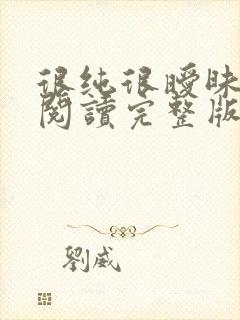 很纯很曖昧
閱讀完整版
劉威